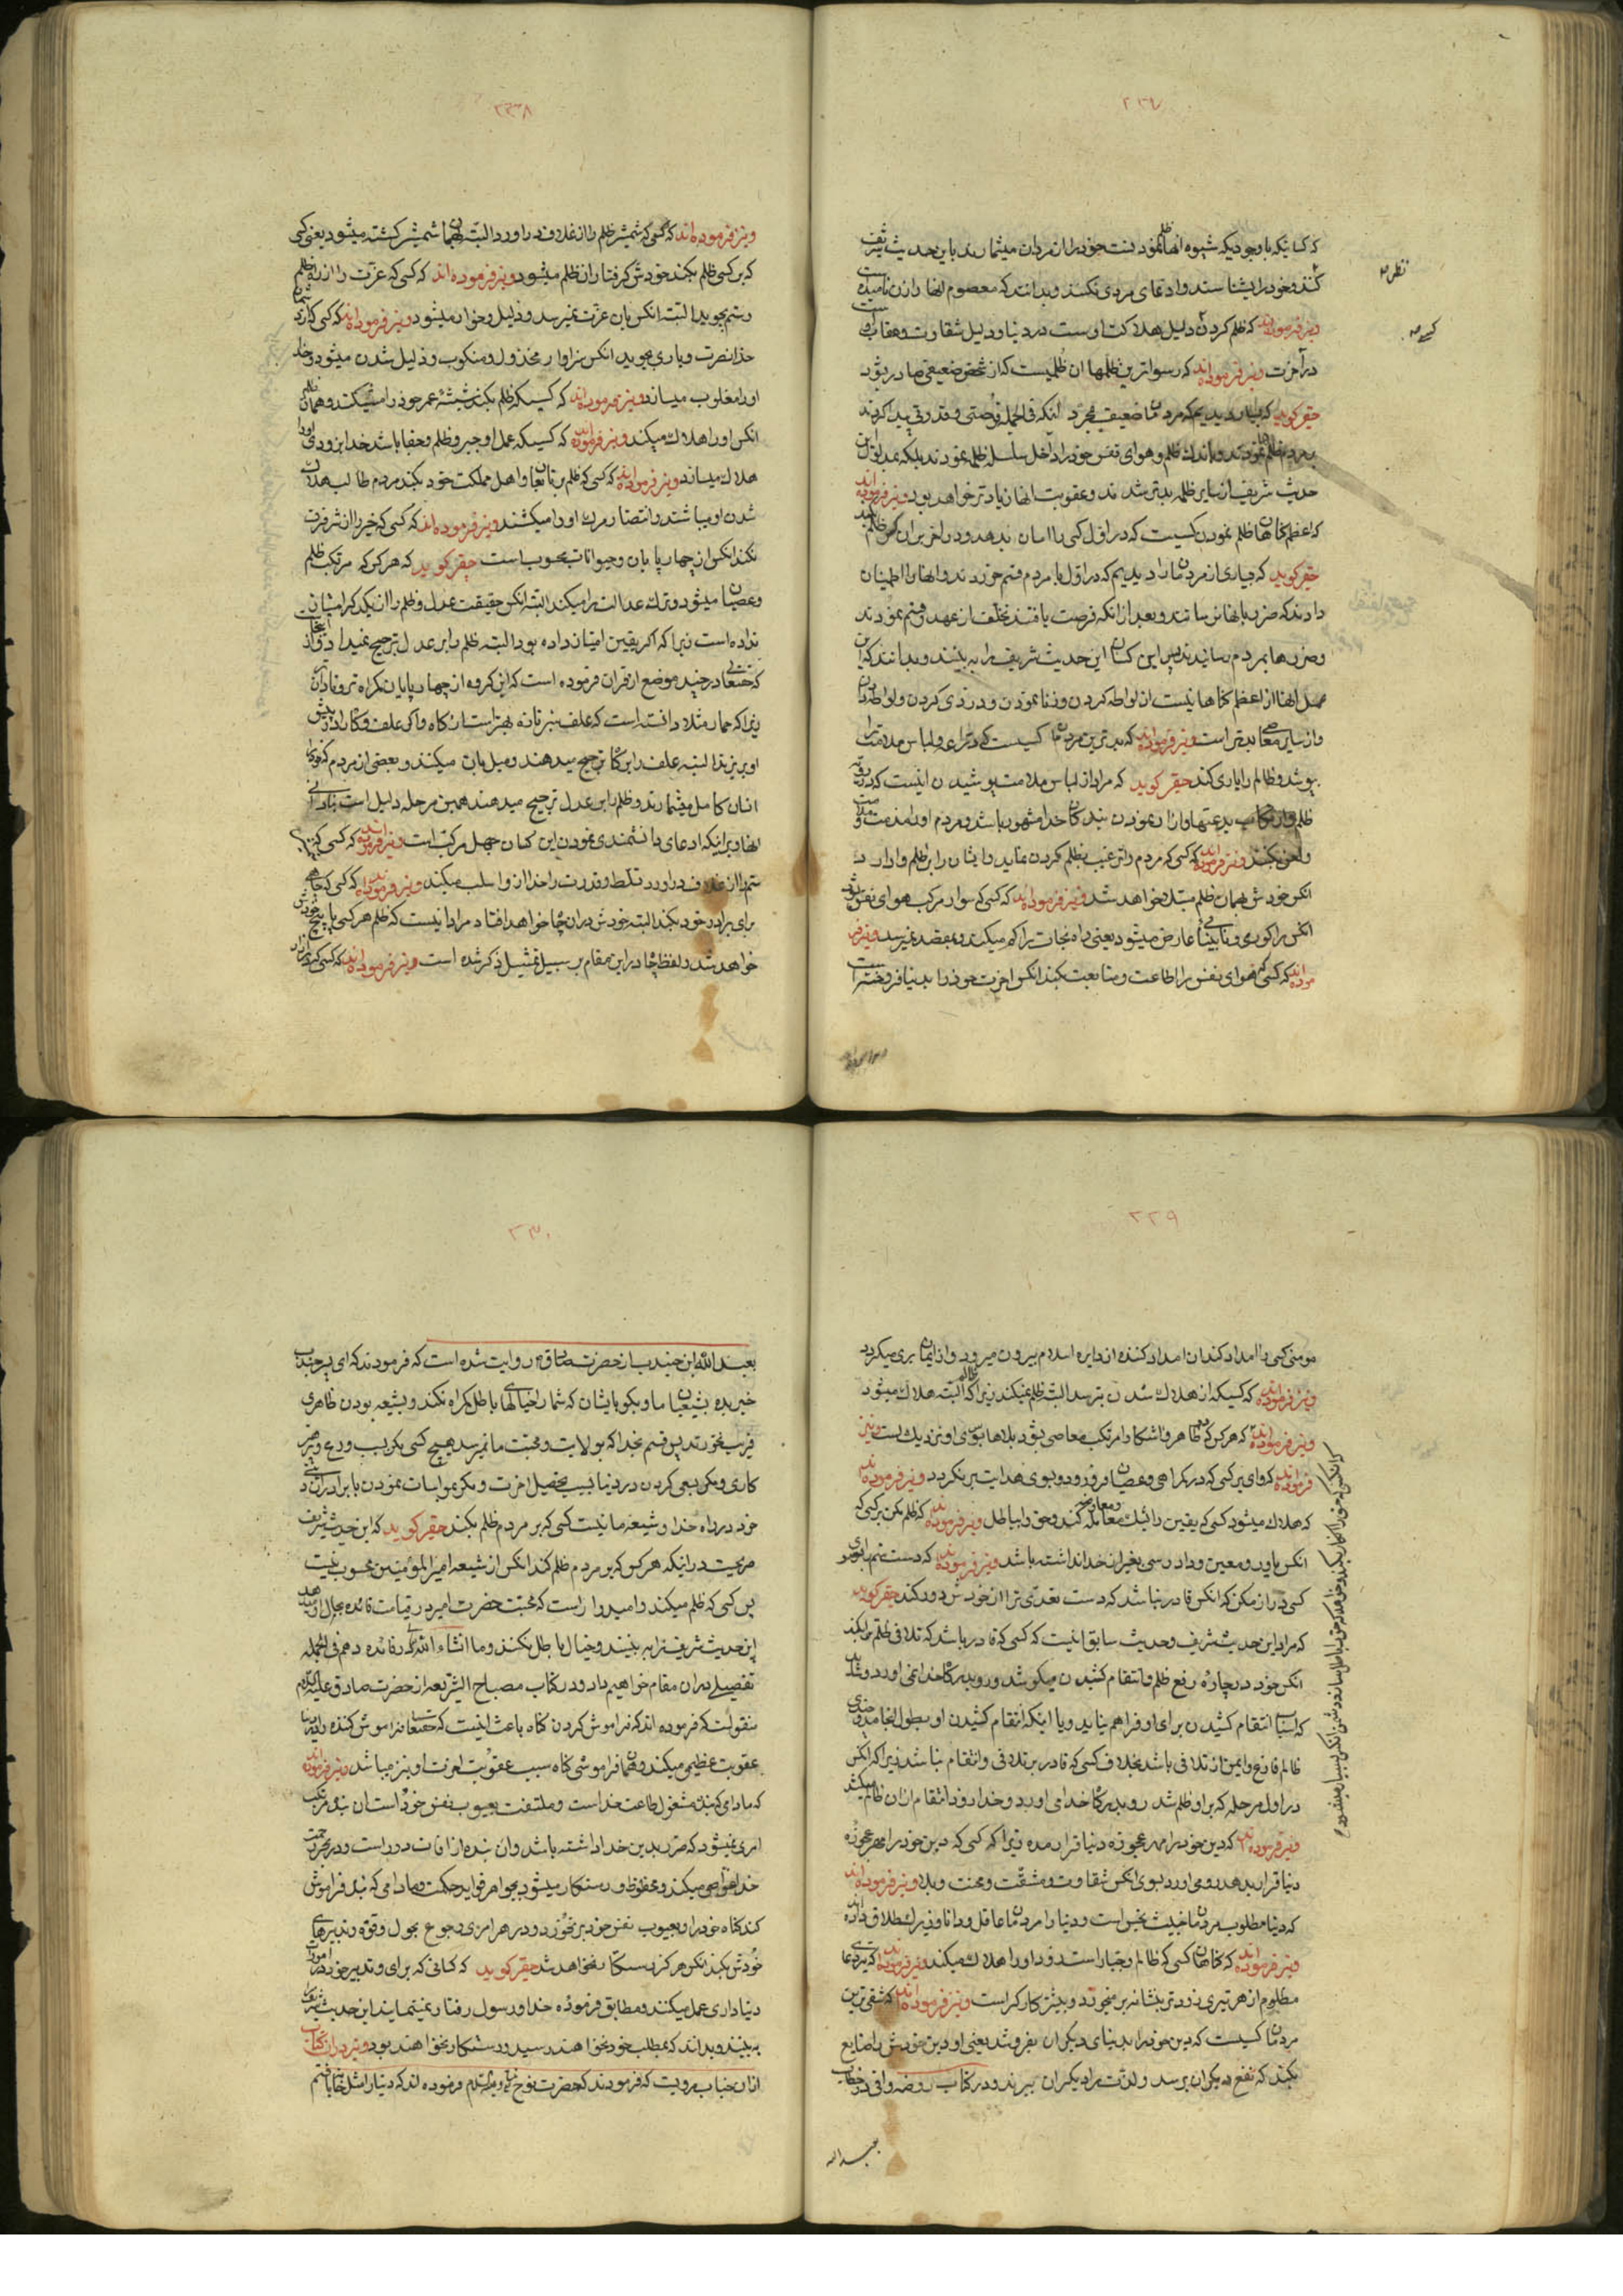 ۲۲۷
که کسانیکه باوجودیکه شیوه انها ظلم نمودنست خود را از مردان میشمارند باین حدیث شریف
کنند و خود را بشناسند و ادعای مردی نکنند و بدانند که معصوم انها را زن نامیده است
و نیز فرموده اند که ظلم کردن دلیل هلاکت اوست در دنیا و دلیل شقاوت و عقاب او
در آخرت و نیز فرموده اند که رسواترین ظلمها ان ظلمیست که از شخص ضعیفی صادر شود
حقیر گوید که بسیار دیدیم که مردمان ضعیف بمجرد آنکه فی الجمله فرصتی و قدرتی پیدا کردند
بمردم ظلم نمودند و باندك ظلم و هوای نفس خود را داخل سلسله ظلمه نمودند بلکه بمدلول این
حدیث شریف از سایر ظلمه بدتر شدند و عقوبت انها زیادتر خواهد بود و نیز فرموده اند
که اعظم گناهان ظلم نمودن کسیست که در اول کسی را امان بدهد و در اخر بران کس ظلم کند
حقیر گوید که بسیاری از مردمان را دیدیم که در اول با مردم قسم خوردند و انها را اطمینان
دادند که ضرر بانها نرسانند و بعد از انکه فرصت یافتند تخلف از عهد و قسم نمودند
و ضررها بمردم رسانیدند پس این کسان این حدیث شریف را به بینند و بدانند که این
عمل انها از اعظم گناهانیست از لواطه کردن و زنا نمودن و دزدی کردن و لواطه دادن
و از سایر معاصی بدتر است و نیز فرموده اند که بدترین مردمان کسیست که
بپوشد و ظالم را یاری کند حقیر گوید که مراد از لباس ملامت پوشیدن اینست که در
ظلم و ارتکاب بدعتها و ازار نمودن بندگان خدا مشهور باشد و مردم او را مذمت و ملامت
و لعن بکنند و نیز فرموده اند که کسی که مردم را ترغیب بظلم کردن نماید و ایشان را بر ظلم وادارد
انکس خودش بهمان ظلم مبتلا خواهد شد و نیز فرموده اند که کسی که سوار مرکب هوای نفس شود
انکس را کوری و نابینائی عارض میشود یعنی راه نجات را گم میکند و بمقصد نمیرسد و نیز فر
موده اند که کسی که هوای نفس را اطاعت و متابعت بکند انکس اخرت خود را بدنیا فروخته است
۲۲۸
و نیز فرموده اند که کسی که شمشیر ظلم را از غلاف در اورد البته بهمان شمشیر کشته میشود یعنی کسی
که بر کسی ظلم بکند خودش گرفتار ان ظلم میشود و نیز فرموده اند که کسی که عزت را از راه ظلم
و ستم بجوید البته انکس بان عزت نمیرسد و ذلیل و خوار میشود و نیز فرموده اند که کسی که از دشمنان
خدا نصرت و یاری بجوید انکس سزاوار مخذول و منکوب و ذلیل شدن میشود و خدا
او را مغلوب میسازد و نیز فرموده اند که کسیکه ظلم بکند شیشهٔ عمر خود را میشکند و همان ظلم
انکس را هلاك میکند و نیز فرموده اند که کسیکه عمل او جبر و ظلم و جفا باشد خدا بزودی او را
هلاك میسازد و نیز فرموده اند که کسی که ظلم بر رعایا و اهل مملکت خود بکند مردم طالب هلاك
شدن او میباشند و انتظار مرك او را میکشند و نیز فرموده اند که کسی که خیر را از شر فرق
نکند انکس از چهارپایان و حیوانات محسوب است حقیر گوید که هر کس که مرتکب ظلم
و عصیان میشود و ترك عدالت را میکند البته انکس حقیقت عدل و ظلم را از یکدیگر امتیاز
نداده است زیرا که اگر یقین امتیاز داده بود البته ظلم را بر عدل ترجیح نمیداد و از اینجاست
که حقتعالی در چند موضع از قران فرموده است که این گروه از چهارپایان گمراه تر و نادان ترند
زیرا که حمار مثلا دانسته است که علف سبز تازه بهتر است از کاه و اگر علف و کاه را در پیش
او بریزند البته علف را بر کاه ترجیح میدهند و میل بان میکنند و بعضی از مردم که خود را
انسان کامل میشمارند و ظلم را بر عدل ترجیح میدهند همین مرحله دلیل است بر نادانی
انها و بر اینکه ادعای دانشمندی نمودن این کسان جهل مرکب است و نیز فرموده اند که کسی که
ستم را از غلاف در اورد تسلط و قدرت را خدا از او سلب میکند و نیز فرموده اند که کسی که چاهی
برای برادر خود بکند البته خودش در ان چاه خواهد افتاد مراد انیست که ظلم هر کسی پاپیچ خودش
خواهد شد و لفظ چاه در این مقام بر سبیل تمثیل ذکر شده است و نیز فرموده اند که کسی که
۲۲۹
مومنی کسی را امداد کند ان امداد کننده از دایره اسلام بیرون میرود و از ایمان بری میگردد
و نیز فرموده اند که کسیکه از هلاك شدن بترسد البته ظلم نمیکند زیرا که ظالم البته هلاك میشود
و نیز فرموده اند که هر کس که ظاهر و اشکارا مرتکب معاصی بشود بلاها بسوی او نزدیك است و نیز
فرموده اند که وای بر کسی که در گمراهی و عصیان فرو رود و بسوی هدایت برنگردد و نیز فرموده اند
که هلاك میشود کسی که یقین را بشك معامله و معاوضه کند و حق را بباطل و نیز فرموده اند که ظلم مکن بر کسی که
انکس یاور و معین و دادرسی بغیر از خدا نداشته باشد و نیز فرموده اند که دست ستم را بسوی
کسی دراز مکن که انکس قادر نباشد که دست تعدی ترا از خودش دور کند حقیر گوید
که مراد این حدیث شریف و حدیث سابق اینست که کسی که قادر باشد که تلافی ظلم بکند
انکس خود در چاره رفع ظلم و انتقام کشیدن میکوشد و رو بدرگاه خدا نمی اورد
که اسباب انتقام کشیدن برای او فراهم بیاید و یا اینکه انتقام کشیدن او بطول انجامد
ظالم فارغ و ایمن از تلافی باشد بخلاف کسی که قادر بر تلافی و انتقام نباشد زیرا که انکس
در اول مرحله که بر او ظلم شد رو بدرگاه خدا می اورد و خدا زود انتقام از ان ظالم میکشد
و نیز فرموده اند که دین خود را مهر عجوزه دنیا قرار مده زیرا که کسی که دین خود را مهر عجوزه
دنیا قرار بدهد رو می اورد بسوی انکس شقاوت و مشقت و محنت و بلا و نیز فرموده اند
که دنیا مطلوب مردمان خبیث نجس است و دنیا را مردمان عاقل و دانا و زیرك طلاق داده اند
و نیز فرموده اند که گناهان کسی که ظالم و جبار است زود او را هلاك میکند و نیز فرموده اند که تیر دعای
مظلوم از هر تیری زودتر بنشانه بر میخورد و بیشتر کارگر است و نیز فرموده اند که شقی ترین
مردمان کسیست که دین خود را بدنیای دیگران بفروشد یعنی او دین خودش را ضایع
بکند که نفع بدیگران برسد و لذت را دیگران ببرند و در کتاب روضه وافی
عبد الله
۲۳۰
بعبد الله ابن جندب از حضرت صادق ع روایت شده است که فرمودند که ای پسر جندب
خبر بده بشیعیان ما و بگو بایشان که شما را خیالهای باطل گمراه نکند و بشیعه بودن ظاهری
فریب نخورید پس قسم بخدا که بولایت و محبت ما نمیرسد هیچ کسی مگر بسبب ورع و پرهیز
کاری و مگر بسعی کردن در دنیا بسبب تحصیل اخرت و مگر بمواسات نمودن با برادران دینی
خود در راه خدا و شیعه ما نیست کسی که بر مردم ظلم بکند حقیر گوید که این حدیث شریف
صریحست در اینکه هر کس که بر مردم ظلم کند انکس از شیعه امیر المؤمنین محسوب نیست
پس کسی که ظلم میکند و امیدوار است که محبت حضرت امیر در قیامت فائده بحال او بدهد
این حدیث شریف را به بینند و خیال باطل نکنند و ما انشاء الله تعالی در فائده دهم فی الجمله
تفصیلی در ان مقام خواهیم داد و در کتاب مصباح الشریعه از حضرت صادق علیه السلام
منقولست که فرموده اند که فراموش کردن گناه باعث اینست که حقتعالی فراموش کننده را
عقوبت عظیمی میکند و همان فراموشی گناه سبب عقوبت اخرت او نیز میباشد و نیز فرموده اند
که مادامی که بنده مشغول اطاعت خداست و ملتفت بعیوب نفس خود است ان بنده مرتکب
امری نمیشود که ضرر بدین خدا داشته باشد و ان بنده از افات دور است و در بحر رحمت
خدا غواصی میکند و محظوظ و رستگار میشود بجواهر فواید حکمت و مادامی که بنده فراموش
کند گناه خود را و بعیوب نفس خود بر نخورد و در هر امری رجوع بحول و قوه و تدبیرهای
خودش بکند انکس هرگز رستگار نخواهد شد حقیر گوید که کسانی که برای و تدبیر خود در امورات
دنیاداری عمل میکنند و مطابق فرموده خدا و رسول رفتار نمینمایند این حدیث شریف را
به بینند و بدانند که بمطلب خود نخواهند رسید و رستگار نخواهند بود و نیز در ان کتاب
از ان جناب مرویست که فرمودند که حضرت نوح فرموده اند که دنیا را مثل خانه یافتم